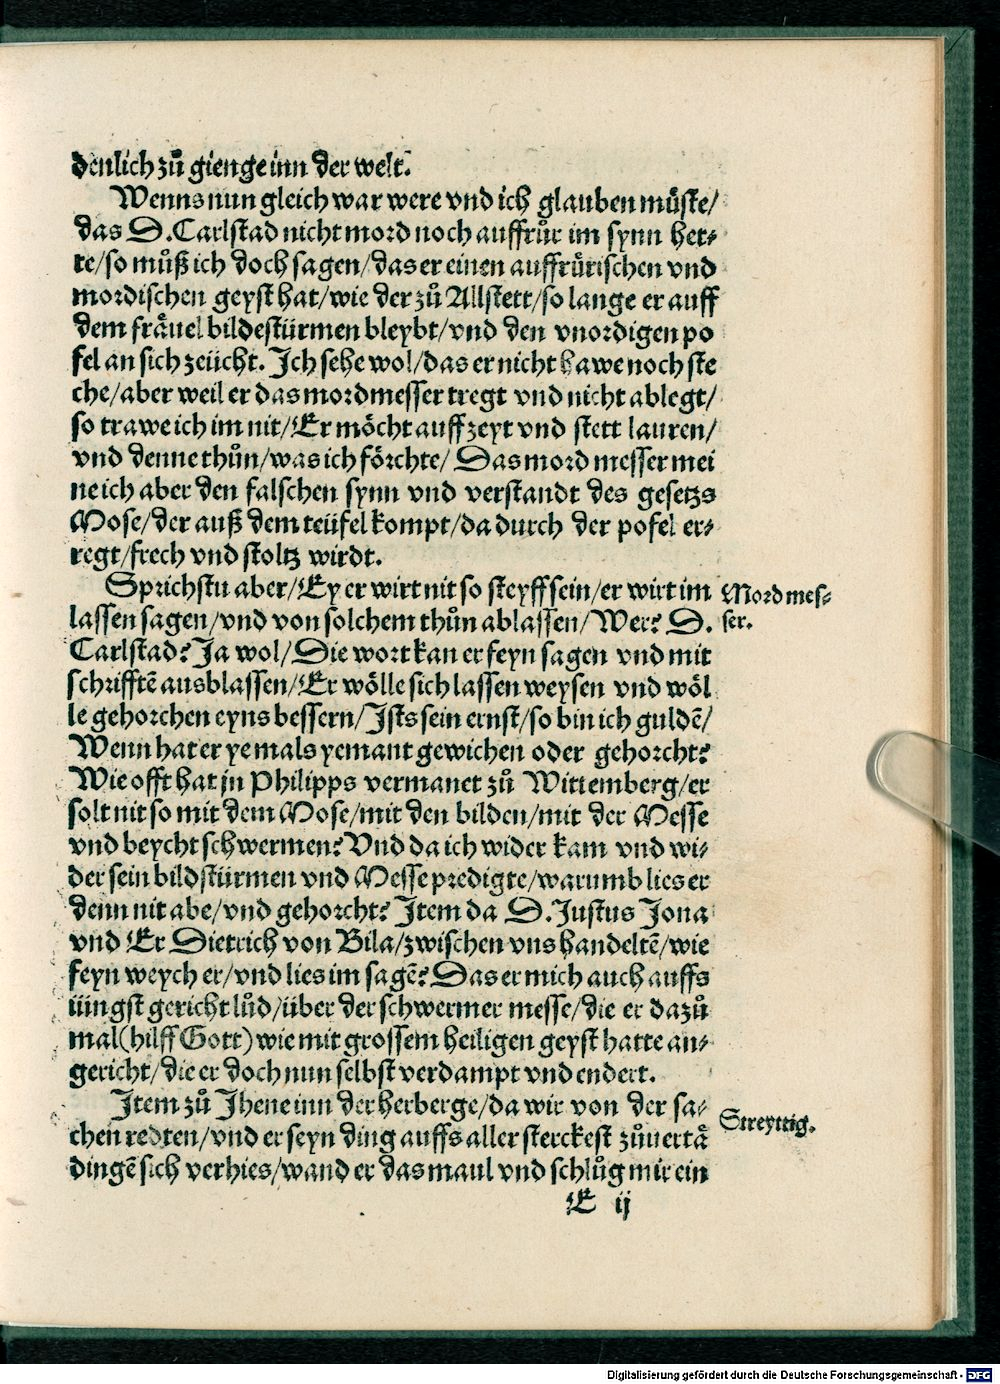 denlich zů gienge inn der welt.
Wenns nun gleich war were vnd ich glauben můste/
das D. Carlstad nicht mord noch auffrůr im synn het⸗
te/so můß ich doch sagen/das er einen auffrůrischen vnd
mordischen geyst hat/wie der zů Allstett/so lange er auff
dem fråuel bildestürmen bleybt/vnd den vnordigen po
fel an sich zeücht. Ich sehe wol/das er nicht hawe noch ste
che/aber weil er das mordmesser tregt vnd nicht ablegt/
so trawe ich im nit/Er möcht auff zeyt vnd stett lauren/
vnd denne thůn/was ich förchte/ Das mord messer mei
ne ich aber den falschen synn vnd verstandt des gesetzs
Mose/der auß dem teüfel kompt/da durch der pofel er⸗
regt/frech vnd stoltz wirdt.
Sprichstu aber/Ey er wirt nit so steyff sein/er wirt im
Mord mes⸗
lassen sagen/vnd von solchem thůn ablassen/Wer? D.
ser.
Carlstad? Ja wol/Die wort kan er feyn sagen vnd mit
schrifftē ausblassen/Er wölle sich lassen weysen vnd wöl
le gehorchen eyns bessern/Ists sein ernst/so bin ich guldē/
Wenn hat er yemals yemant gewichen oder gehorcht?
Wie offt hat jn Philipps vermanet zů Wittemberg/er
solt nit so mit dem Mose/mit den bilden/mit der Messe
vnd beycht schwermen? Vnd da ich wider kam vnd wi⸗
der sein bildstürmen vnd Messe predigte/warumb lies er
denn nit abe/vnd gehorcht? Item da D. Justus Jona
vnd Er Dietrich von Bila/zwischen vns handeltē/wie
feyn weych er/vnd lies im sagē? Das er mich auch auffs
iüngst gericht lůd/über der schwermer messe/die er dazů
mal (hilff Gott) wie mit grossem heiligen geyst hatte an⸗
gericht/die er doch nun selbst verdampt vnd endert.
Item zů Jhene inn der herberge/da wir von der sa⸗
Streyttig.
chen redten/vnd er seyn ding auffs aller sterckest zůuertå
dingē sich verhies/wand er das maul vnd schlůg mir ein
E ij
Digitalisierung gefördert durch die Deutsche Forschungsgemeinschaft - DFG